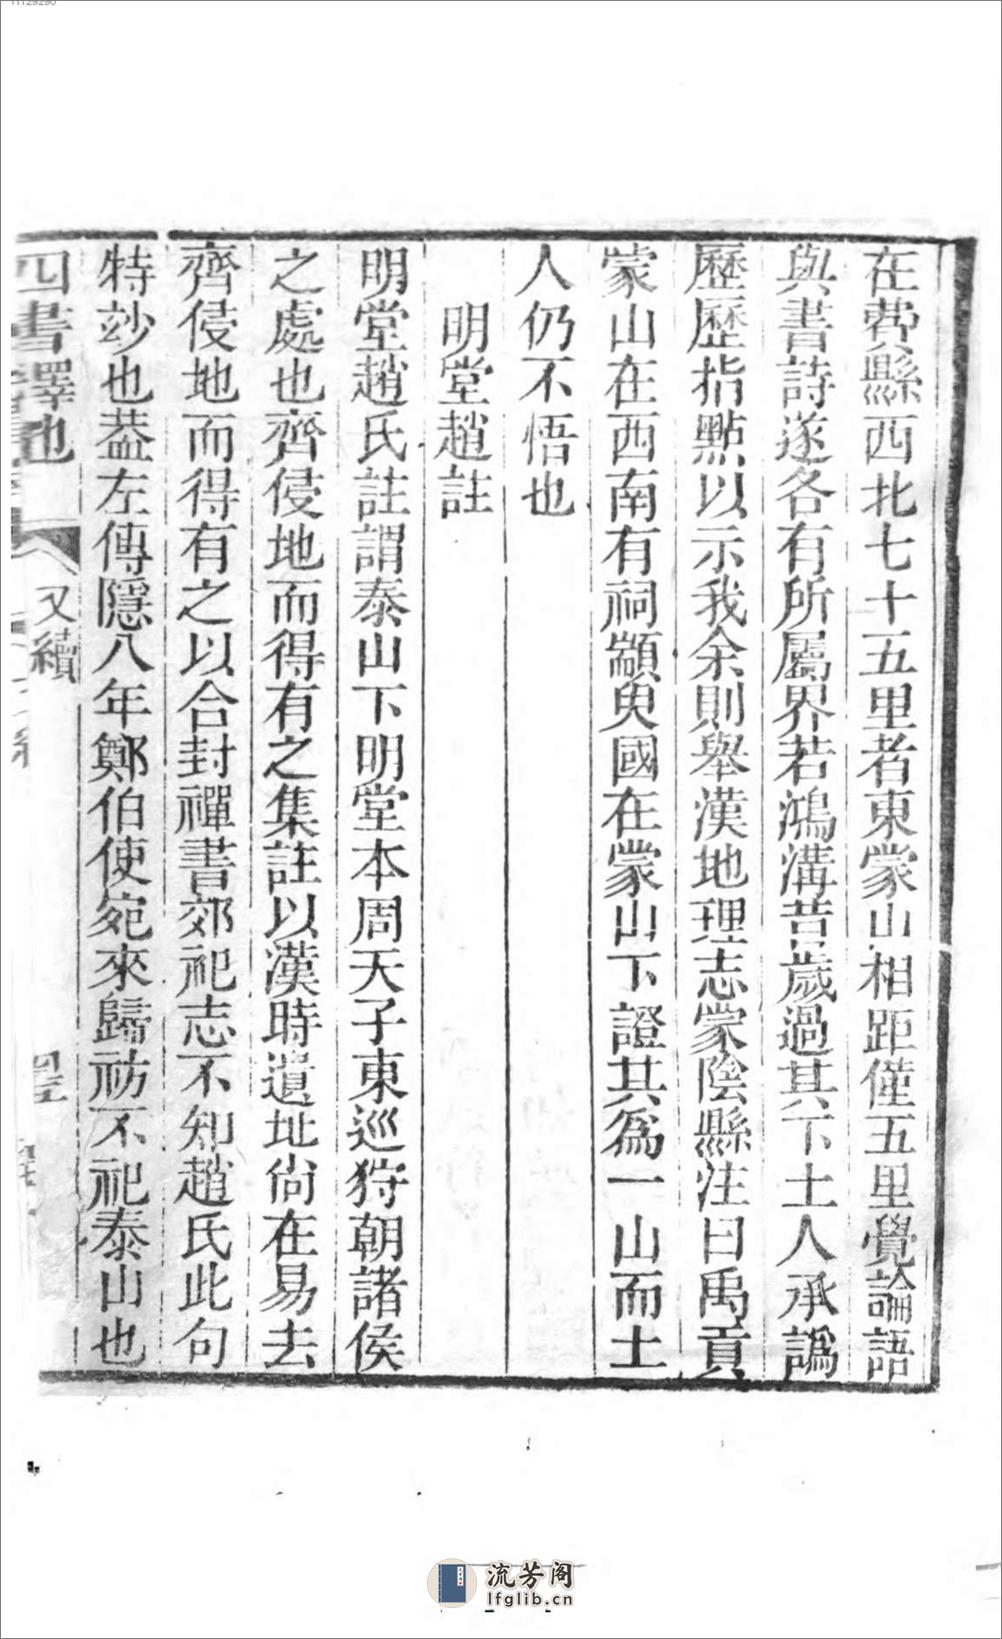 在費縣西北七十五里者東蒙山相距僅五里覺論語
與書詩遂各有所屬界若鴻溝昔歲過其下土人承譌
歷歷指點以示我余則舉漢地理志蒙陰縣注曰禹貢
蒙山在西南有祠顓臾國在蒙山下證其爲一山而土
人仍不悟也
明堂趙註
明堂趙氏註謂泰山下明堂本周天子東巡狩朝諸侯
之處也齊侵地而得有之集註以漢時遺址尙在易去
齊侵地而得有之以合封禪書郊祀志不知趙氏此句
特妙也葢左傳隱八年鄭伯使宛來歸祊不祀泰山也
四書釋地
又續
流芳阁
lfglib.cn